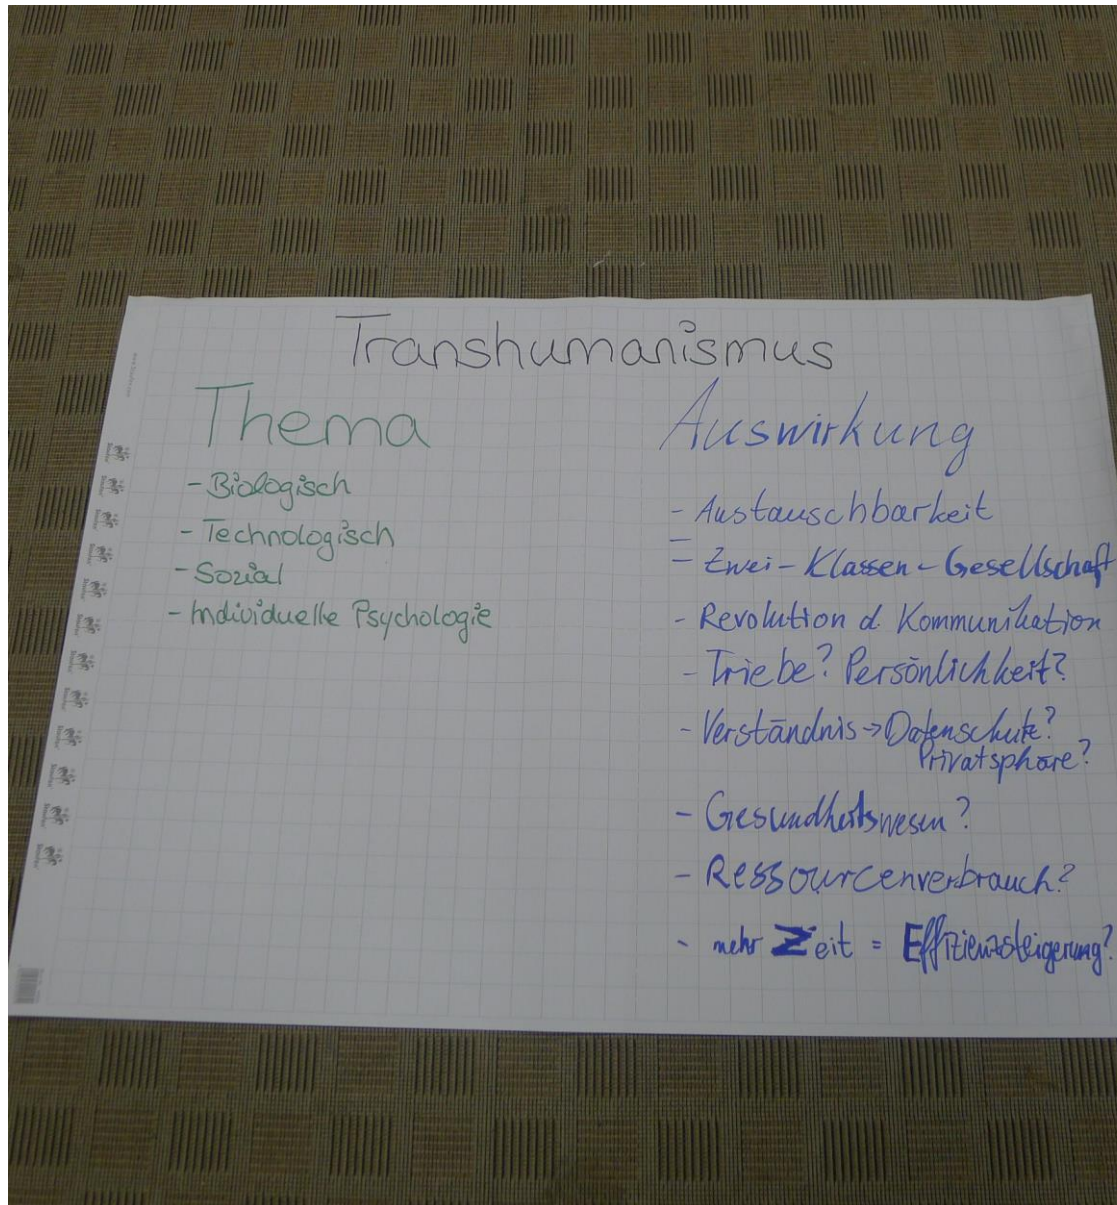 Transhumanismus
Thema
- Biologisch
- Technologisch
- Sozial
- Individuelle Psychologie
Auswirkung
- Austauschbarkeit
- Zwei-Klassen-Gesellschaft
- Revolution d. Kommunikation
- Triebe? Persönlichkeit?
- Verständnis → Datenschutz?
Privatsphäre?
- Gesundheitswesen?
- Ressourcenverbrauch?
- mehr Zeit = Effizienzsteigerung?